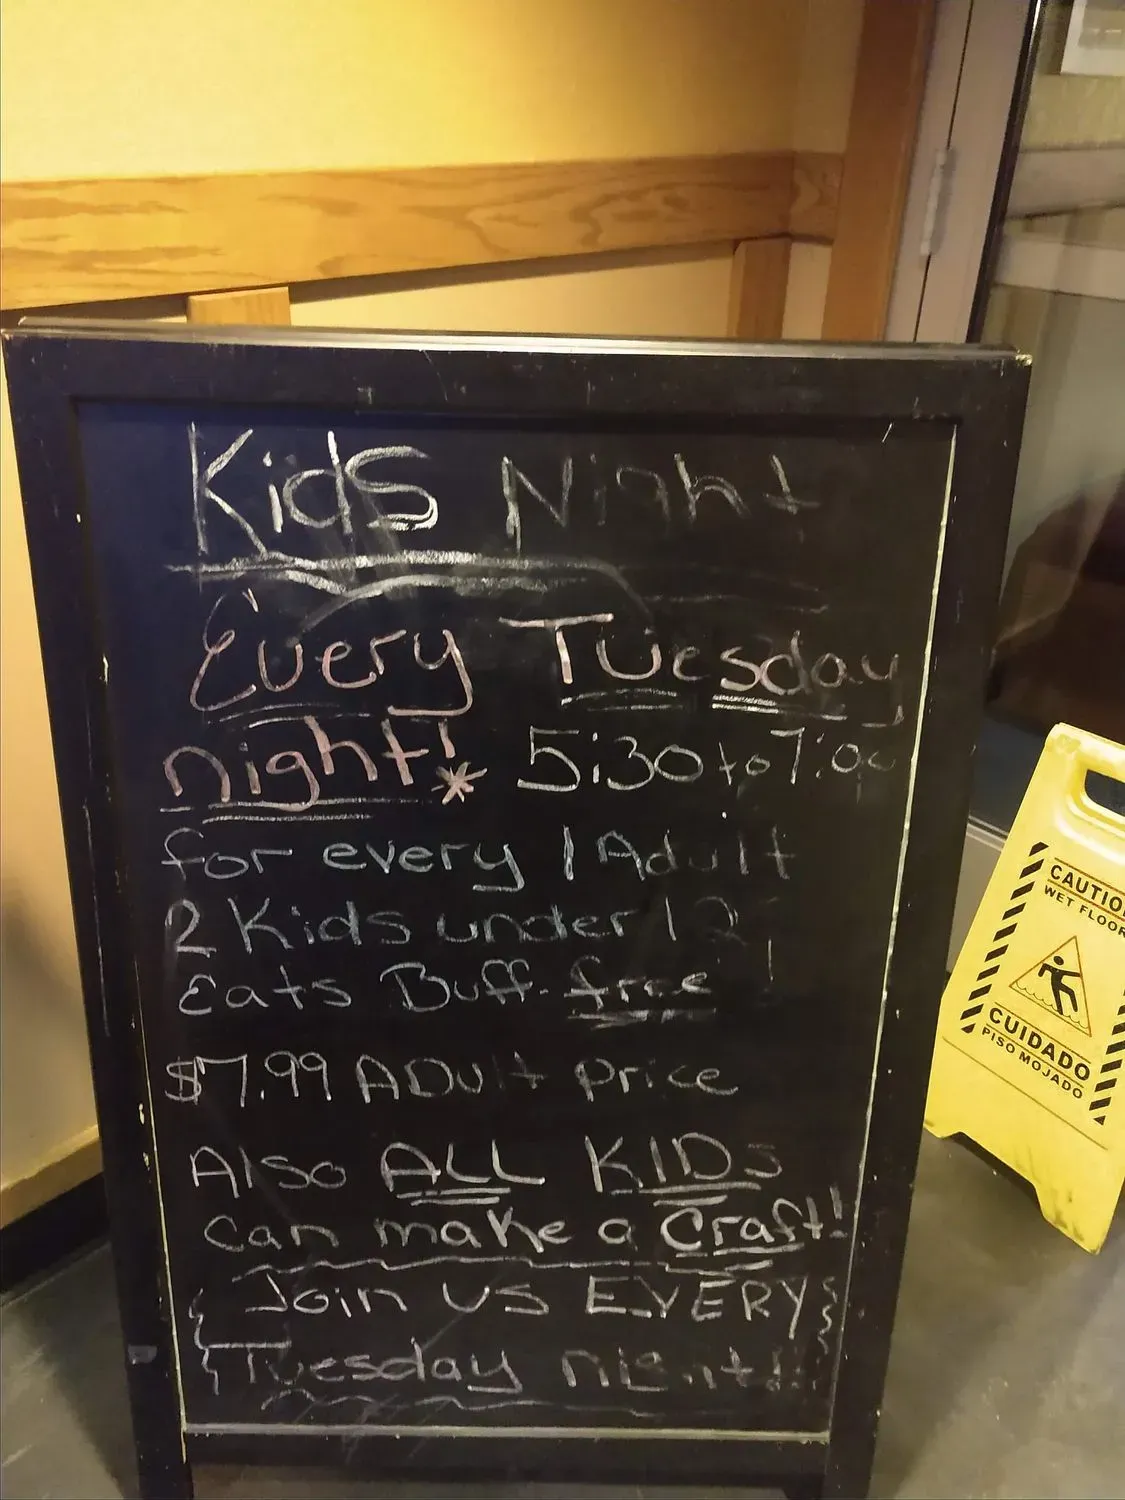 Kids Night
Every Tuesday
night! * 5:30 to 7:00
for every 1 Adult
2 Kids under 12
Eats Buff. free !
$7.99 ADult price
Also ALL KIDs
can make a Craft!
Join us EVERY
Tuesday night!!!
CAUTION
WET FLOOR
CUIDADO
PISO MOJADO